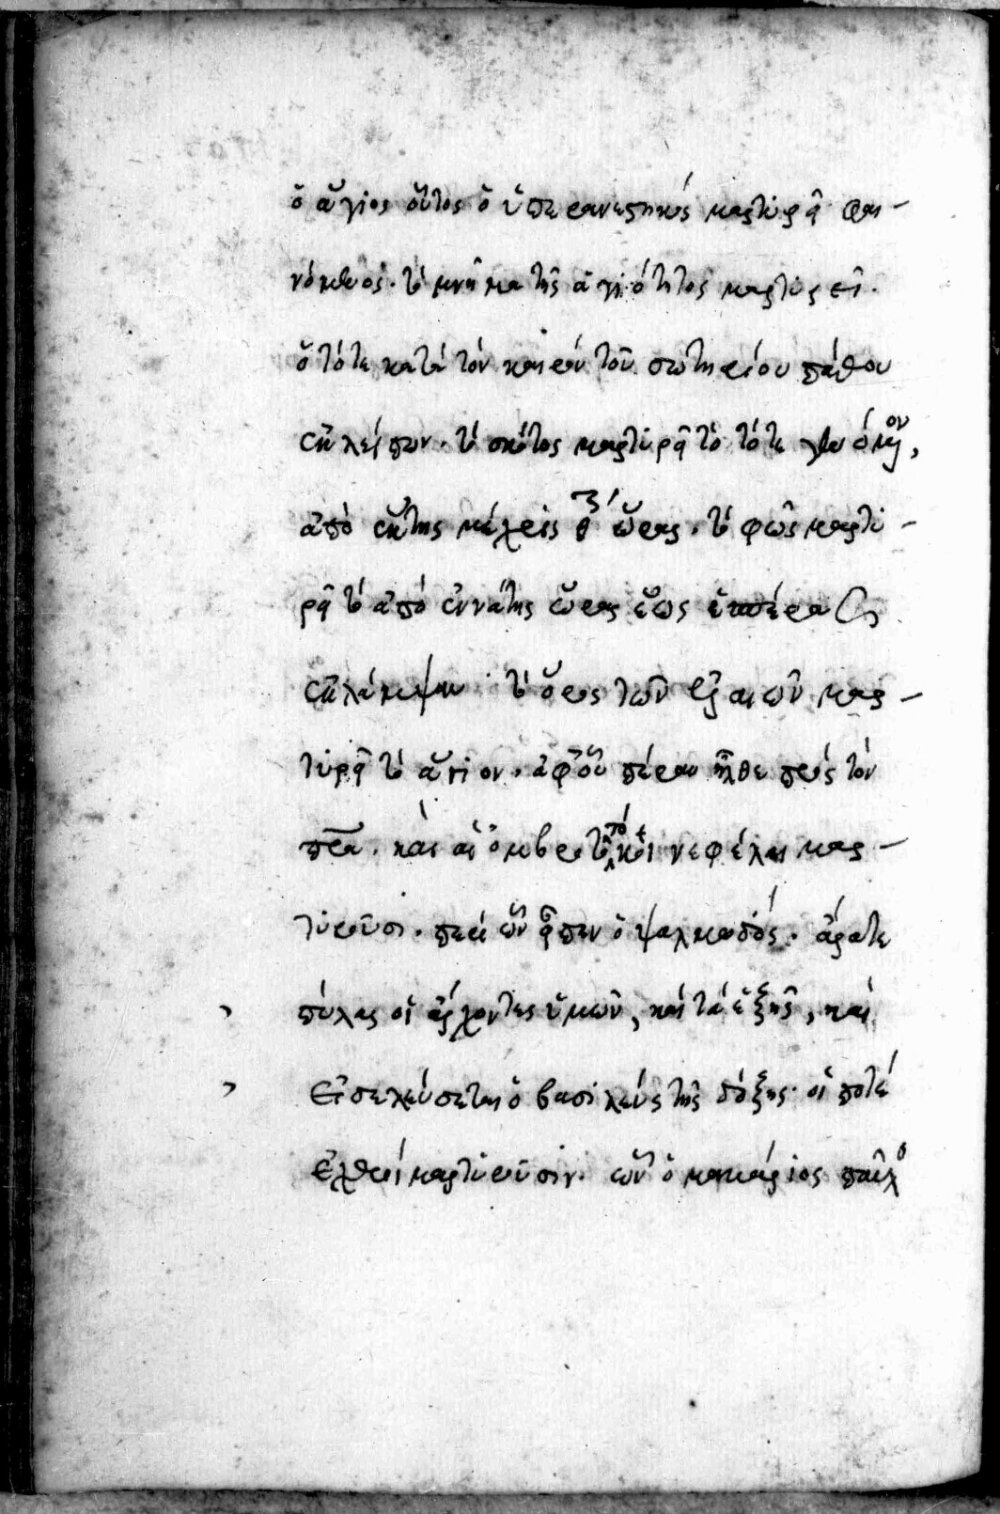 ὁ ἅγιος οὗτος ὁ ὑπερανεστηκὼς μαρτυρεῖ φαι-
νόμενος. τὸ μνῆμα τῆς ἁγιότητος μαρτυρεῖ.
ὁ τότε κατὰ τὸν καιρὸν τοῦ σωτηρίου πάθου
ἐκλείπων. τὸ σκότος μαρτυρεῖ τὸ τότε γενόμενον,
ἀπὸ ἕκτης μέχρις ὥρας. τὸ φῶς μαρτυ-
ρεῖ τὸ ἀπὸ ἐννάτης ὥρας ἕως ἑσπέρας
ἐκλάμψαν τὸ ὄρος τῶν ἐλαιῶν μαρ-
τυρεῖ τὸ ἅγιον. ἀφ' οὗ πέραν ἦλθε πρὸς τὸν
πρα. καὶ αἱ ὀμβροτόκοι νεφέλαι μαρ-
τυροῦσι. περὶ ὧν εἶπεν ὁ ψαλμωδός. ἄρατε
πύλας οἱ ἄρχοντες ὑμῶν, καὶ τὰ ἑξῆς, καὶ
εἰσελεύσεται ὁ βασιλεὺς τῆς δόξης. οἱ ποτὲ
ἐχθροὶ μαρτυροῦσιν. ὧν ὁ μακάριος παῦλο